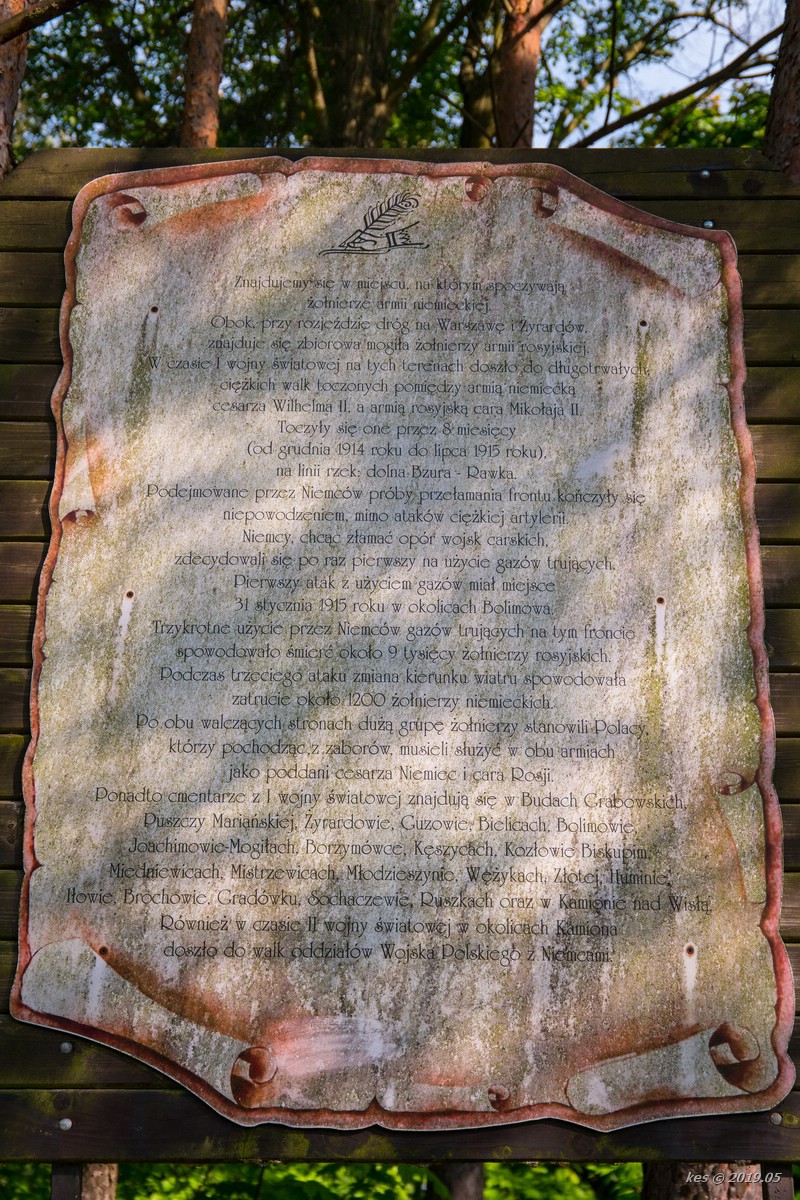 Znajdujemy się w miejscu, na którym spoczywają
żołnierze armii niemieckiej.
Obok, przy rozjeździe dróg na Warszawę i Żyrardów,
znajduje się zbiorowa mogiła żołnierzy armii rosyjskiej.
W czasie I wojny światowej na tych terenach doszło do długotrwałych,
ciężkich walk toczonych pomiędzy armią niemiecką
cesarza Wilhelma II, a armią rosyjską cara Mikołaja II.
Toczyły się one przez 8 miesięcy
(od grudnia 1914 roku do lipca 1915 roku),
na linii rzek: dolna Bzura - Rawka.
Podejmowane przez Niemców próby przełamania frontu kończyły się
niepowodzeniem, mimo ataków ciężkiej artylerii.
Niemcy, chcąc złamać opór wojsk carskich,
zdecydowali się po raz pierwszy na użycie gazów trujących.
Pierwszy atak z użyciem gazów miał miejsce
31 stycznia 1915 roku w okolicach Bolimowa.
Trzykrotne użycie przez Niemców gazów trujących na tym froncie
spowodowało śmierć około 9 tysięcy żołnierzy rosyjskich.
Podczas trzeciego ataku zmiana kierunku wiatru spowodowała
zatrucie około 1200 żołnierzy niemieckich.
Po obu walczących stronach dużą grupę żołnierzy stanowili Polacy,
którzy pochodząc z zaborów, musieli służyć w obu armiach
jako poddani cesarza Niemiec i cara Rosji.
Ponadto cmentarze z I wojny światowej znajdują się w Budach Grabowskich,
Puszczy Mariańskiej, Żyrardowie, Guzowie, Bielicach, Bolimowie,
Joachimowie-Mogiłach, Borzymówce, Kęszycach, Kozłowie Biskupim,
Miedniewicach, Mistrzewicach, Młodzieszynie, Wężykach, Złotej, Huminie,
Iłowie, Brochowie, Gradówku, Sochaczewie, Ruszkach oraz w Kamionie nad Wisłą.
Również w czasie II wojny światowej w okolicach Kamiona
doszło do walk oddziałów Wojska Polskiego z Niemcami.
kes © 2019.05